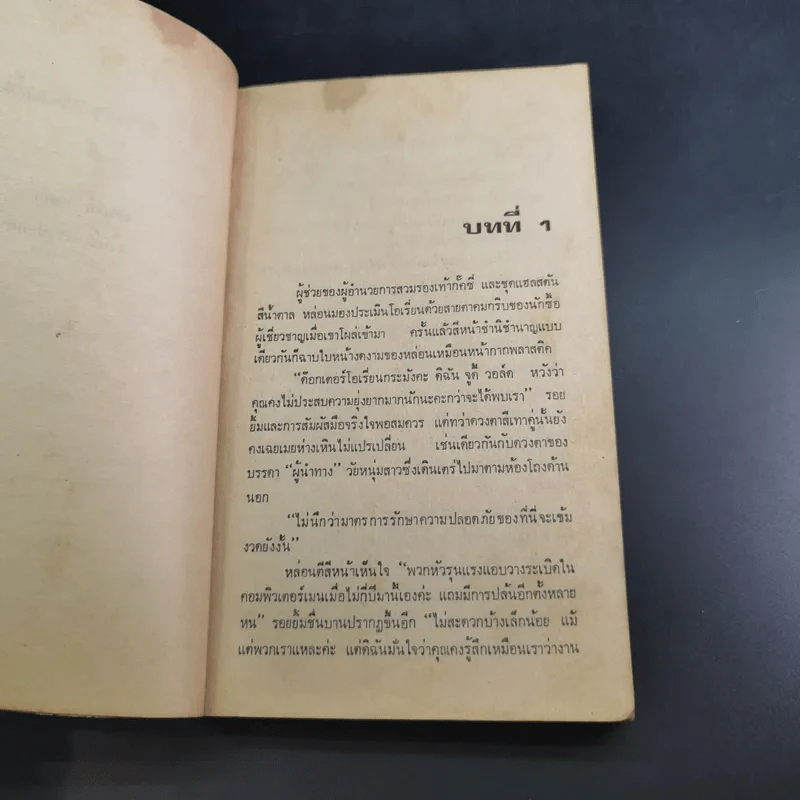 บทที่ 1
ผู้ช่วยของผู้อำนวยการสวมรองเท้ากั๊คซี่ และชุดแฮลสตัน
สีน้ำตาล หล่อนมองประเมินโอเรี่ยนด้วยสายตาคมกริบของนักซื้อ
ผู้เชี่ยวชาญเมื่อเขาโผล่เข้ามา ครั้นแล้วสีหน้าชำนิชำนาญแบบ
เดียวกันก็ฉาบใบหน้างดงามของหล่อนเหมือนหน้ากากพลาสติค
“ด๊อกเตอร์โอเรี่ยนกระมังคะ ดิฉัน จูดี้ วอล์ด หวังว่า
คุณคงไม่ประสบความยุ่งยากมากนักนะคะกว่าจะได้พบเรา” รอย
ยิ้มและการสัมผัสมือจริงใจพอสมควร แต่ทว่าดวงตาสีเทาคู่นั้นยัง
คงเฉยเมยห่างเหินไม่แปรเปลี่ยน เช่นเดียวกันกับดวงตาของ
บรรดา “ผู้นำทาง” วัยหนุ่มสาวซึ่งเดินเตร่ไปมาตามห้องโถงด้าน
นอก
“ไม่นึกว่ามาตรการรักษาความปลอดภัยของที่นี่จะเข้ม
งวดยังงั้น”
หล่อนตีสีหน้าเห็นใจ “พวกหัวรุนแรงแอบวางระเบิดใน
คอมพิวเตอร์เมนเมื่อไม่กี่ปีมานี้เองค่ะ แถมมีการปล้นอีกตั้งหลาย
หน” รอยยิ้มชื่นบานปรากฏขึ้นอีก “ไม่สะดวกบ้างเล็กน้อย แม้
แต่พวกเราแหละค่ะ แต่ดิฉันมั่นใจว่าคุณคงรู้สึกเหมือนเราว่างาน